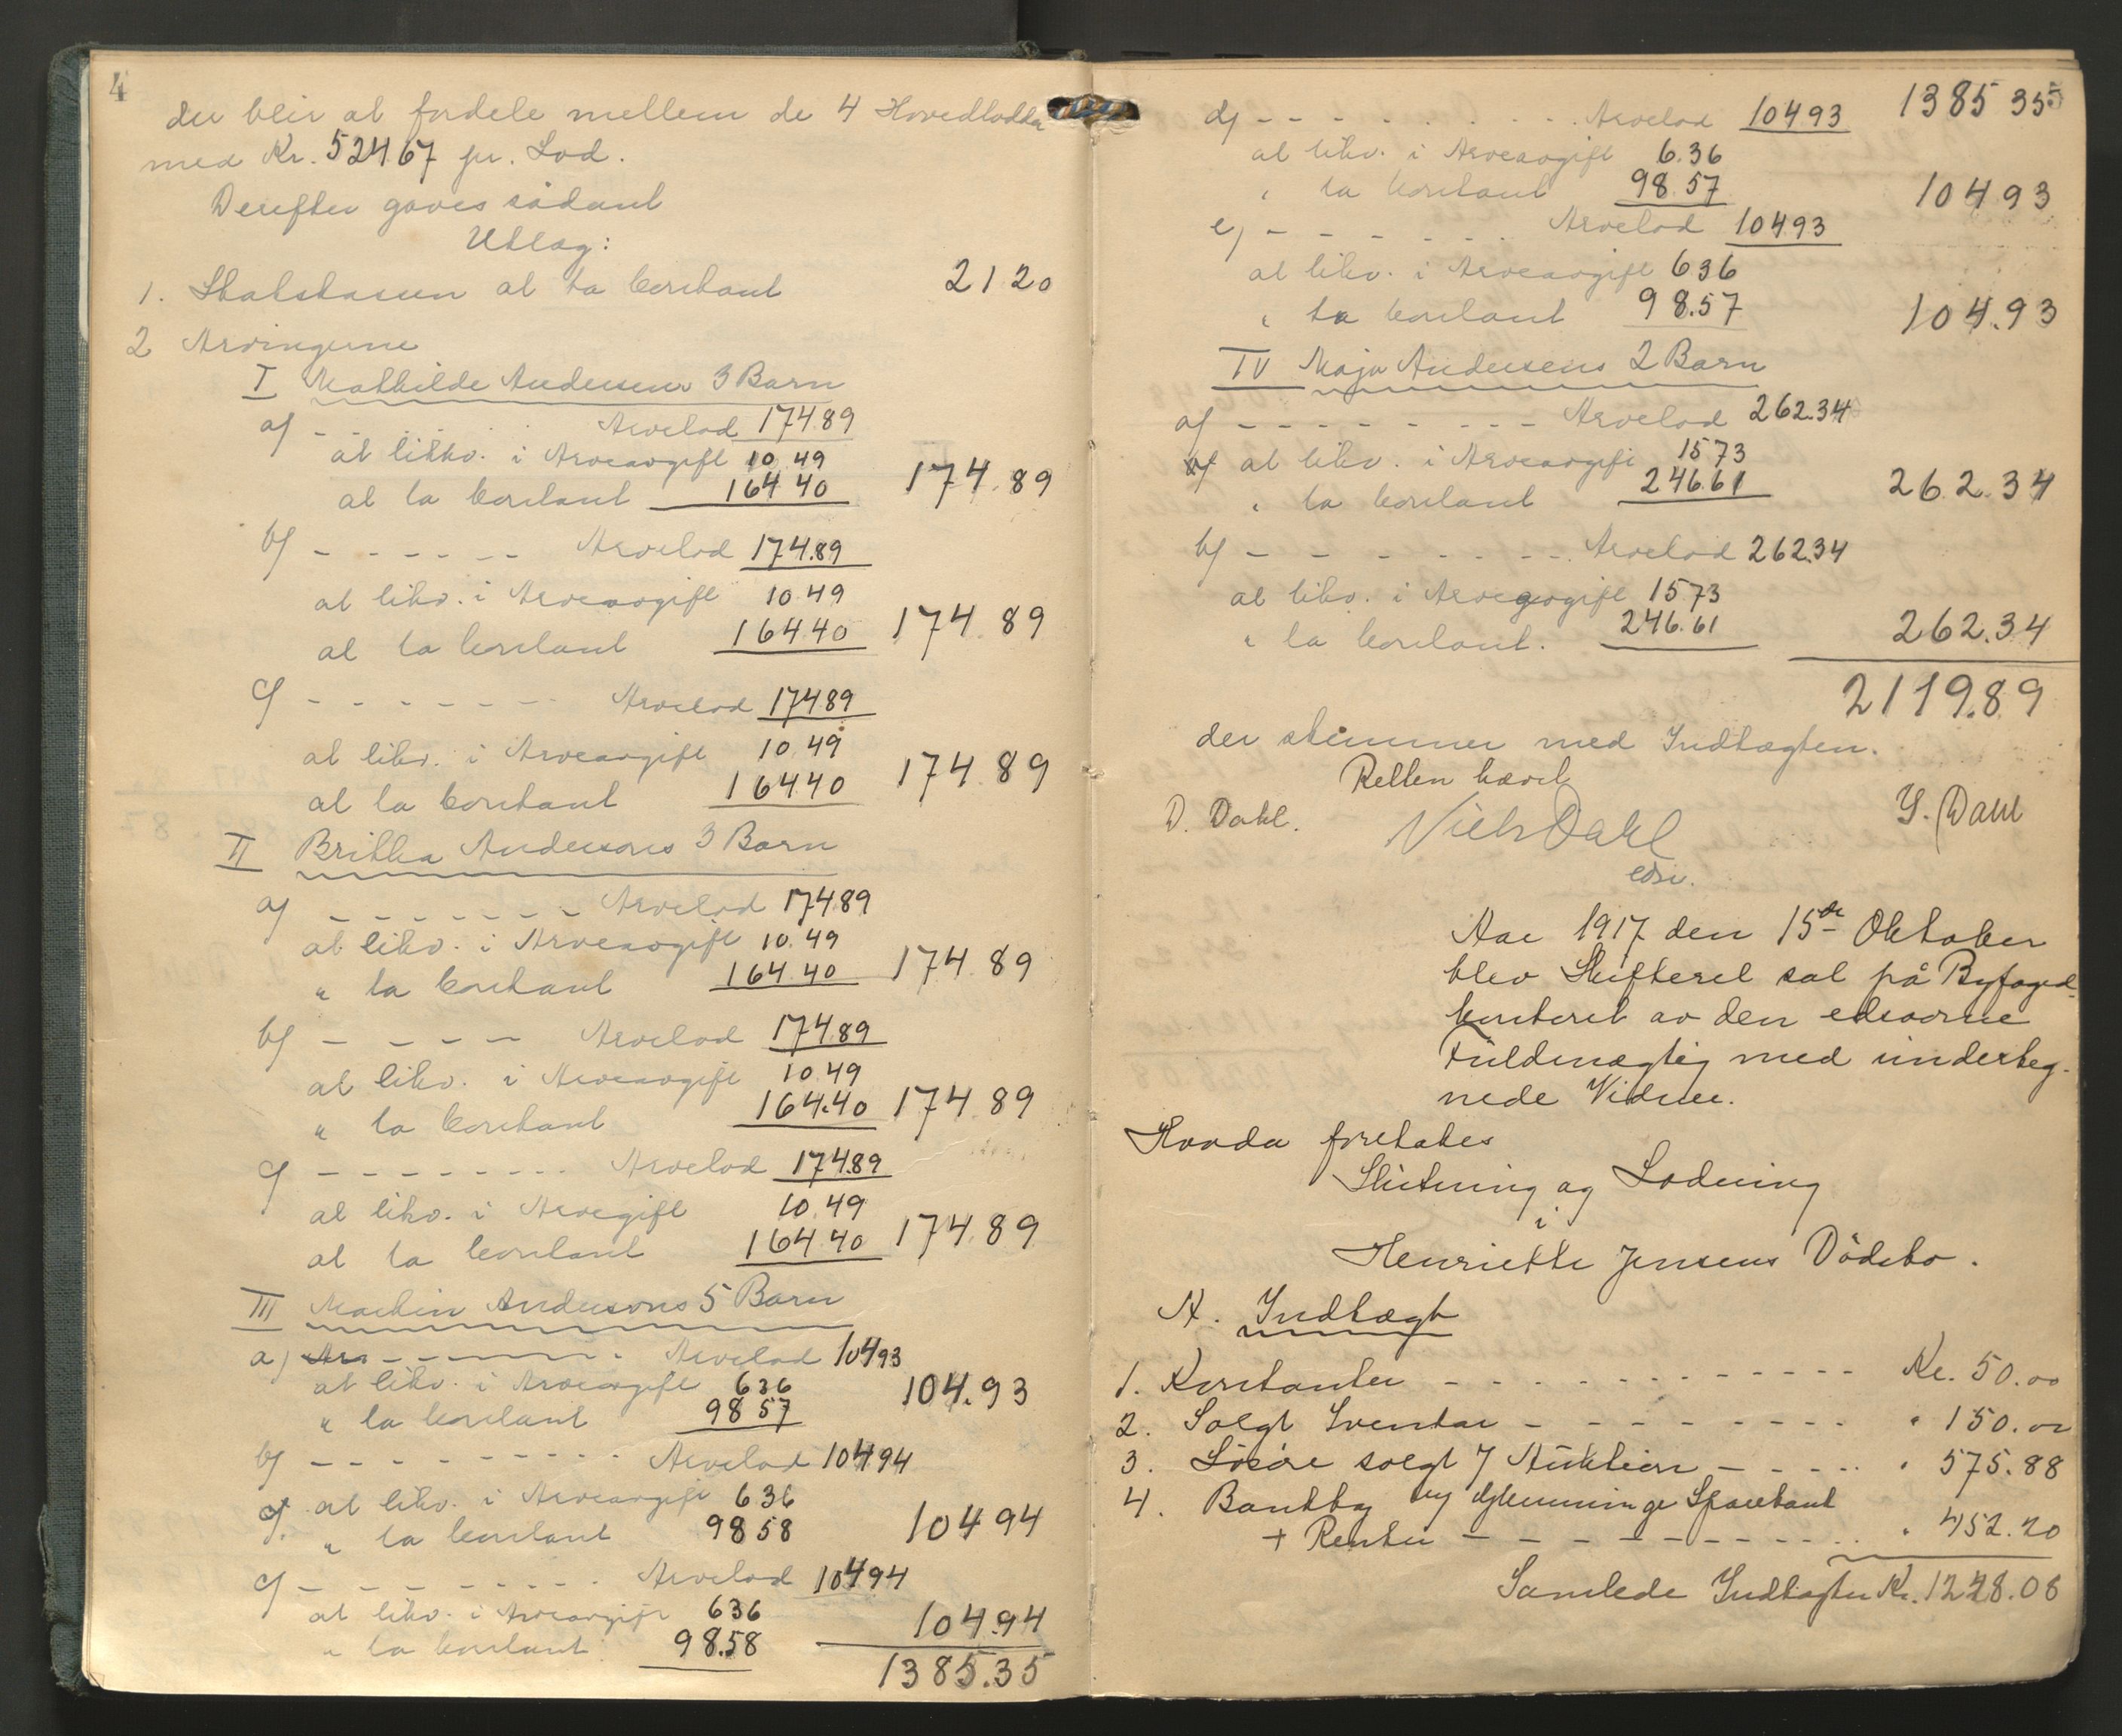 4
der blir at fordele mellem de 4 Hovedlodder
med Kr. 524.67 pr. Lod.
Derefter gaves sådant
Utlæg:
1. Statskassen at ta kontant 21 20
2 Arvingerne
I Mathilde Andersens 3 Barn
a) - - - Arvelod 174.89
at likv. i Arveavgift 10.49
at ta kontant 164.40 174.89
b) - - - - - - Arvelod 174.89
at likv. i Arveavgift 10.49
at ta kontant 164.40 174.89
c) - - - - - - - Arvelod 174.89
at likv. i Arveavgift 10.49
at ta kontant 164.40 174.89
II Britha Andersons 3 Barn
a) - - - - - - - Arvelod 174.89
at likv. i Arveavgift 10.49
" ta kontant 164.40 174.89
b) - - - - - Arvelod 174.89
at likv. i Arveavgift 10.49
" ta kontant 164.40 174.89
c) - - - - - - - - Arvelod 174.89
at likv. i Arvegift 10.49
at ta kontant 164.40 174.89
III Andersons 5 Barn
a) - - - - - - Arvelod 104.93
at likv. i Arveavgift 6 36
" ta kontant 98 57 104.93
b) - - - - - - - - - Arvelod 104.94
at likv. i Arveavgift 6 36
" ta kontant 98 58 104 94
c) - - - - - - - - - Arvelod 104 94
at likv. i Arveavgift 6 36
" ta kontant 98.58 104.94
1385.35
1385 35
d) - - - - - - - - - Arvelod 104 93
at likv. i Arveavgift 6.36
" ta kontant 98.57 104 93
e) - - - - - - - Arvelod 104 93
at likv. i Arveavgift 6 36
" ta kontant 98.57 104.93
IV Maja Andersens 2 Barn
a) - - - - - - - - - Arvelod 262.34
at likv. i Arveavgift 15 73
" ta kontant 246.61 262.34
b) - - - - - - - - - Arvelod 262.34
at likv. i Arveavgift 15 73
" ta kontant. 246.61 262.34
2119.89
der stemmer med Indtægten.
Retten hævet
D. Dahl. Niels Dahl Y. Dahl
edsv.
Aar 1917 den 15de Oktober
blev Skifteret sat på Byfoged-
kontoret av den edsvorne
Fuldmægtig med underteg-
nede Vidne.
Hvorda foretokes
Slutning og Lodning
i
Henriette Jensens Dödsbo.
A. Indtægt
1. Kontanter - - - - - - - - - - - - Kr. 50.00
2. Solgt Inventar - - - - - - - - - " 150.00
3. Lösöre solgt v/ Auktion - - - - - " 575.88
4. Bankbog Sparebank
+ Renter - - - - - - - - - - - " 452.20
Samlede Indtægter Kr. 1228.08